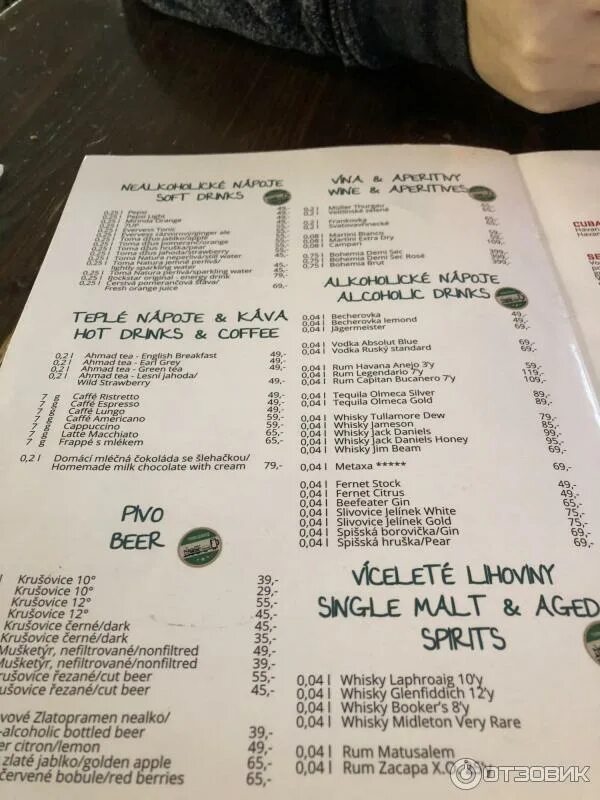 NEALKOHOLICKÉ NÁPOJE
SOFT DRINKS
0,25 l Pepsi 49,-
0,25 l Pepsi Light
0,25 l Mirinda Orange
0,25 l 7UP
0,25 l Evervess Tonic
0,25 l Evervess zázvorový/ginger ale
Toma džus jablko/apple
Toma džus pomeranč/orange
Toma džus hruška/pear
Toma džus jahoda/strawberry
Toma Natura neperlivá/still water
Toma Natura jemně perlivá/
lightly sparkling water 45,-
Toma Natura perlivá/sparkling water 45,-
0,25 l Rockstar original - energy drink 79,-
0,25 l Čerstvá pomerančová šťáva/
Fresh orange juice 69,-
TEPLÉ NÁPOJE & KÁVA
HOT DRINKS & COFFEE
0,2 l Ahmad tea - English Breakfast 49,-
0,2 l Ahmad tea - Earl Grey 49,-
0,2 l Ahmad tea - Green tea 49,-
0,2 l Ahmad tea - Lesní jahoda/
Wild Strawberry 49,-
7 g Caffé Ristretto 49,-
7 g Caffé Espresso 49,-
7 g Caffé Lungo 49,-
7 g Caffé Americano 59,-
7 g Cappuccino 59,-
7 g Latte Macchiato 65,-
7 g Frappé s mlékem 65,-
0,2 l Domácí mléčná čokoláda se šlehačkou/
Homemade milk chocolate with cream 79,-
PIVO
BEER
l Krušovice 10° 39,-
Krušovice 10° 29,-
Krušovice 12° 55,-
Krušovice 12° 45,-
Krušovice černé/dark 45,-
Krušovice černé/dark 35,-
Mušketýr, nefiltrované/nonfiltred 49,-
Mušketýr, nefiltrované/nonfiltred 39,-
rušovice řezané/cut beer 55,-
rušovice řezané/cut beer 45,-
vové Zlatopramen nealko/
-alcoholic bottled beer 39,-
er citron/lemon 49,-
zlaté jablko/golden apple 65,-
červené bobule/red berries 65,-
VÍNA & APERITIVY
WINE & APERITIVES
0,2 l Müller Thurgau 45,-
0,2 l Veltlínské zelené
0,2 l Frankovka
0,2 l Svatovavřinecké
0,08 l Martini Bianco 59,-
0,08 l Martini Extra Dry 59,-
0,08 l Campari 109,-
0,75 l Bohemia Demi Sec 399,-
0,75 l Bohemia Demi Sec Rosé 399,-
0,75 l Bohemia Brut 399,-
ALKOHOLICKÉ NÁPOJE
ALCOHOLIC DRINKS
0,04 l Becherovka 49,-
0,04 l Becherovka lemond 49,-
0,04 l Jägermeister 69,-
0,04 l Vodka Absolut Blue 69,-
0,04 l Vodka Ruský standard 69,-
0,04 l Rum Havana Anejo 3'y 59,-
0,04 l Rum Legendario 7'y 119,-
0,04 l Rum Capitan Bucanero 7'y 109,-
0,04 l Tequila Olmeca Silver 89,-
0,04 l Tequila Olmeca Gold 89,-
0,04 l Whisky Tullamore Dew 79,-
0,04 l Whisky Jameson 85,-
0,04 l Whisky Jack Daniels 99,-
0,04 l Whisky Jack Daniels Honey 95,-
0,04 l Whisky Jim Beam 69,-
0,04 l Metaxa ***** 69,-
0,04 l Fernet Stock 49,-
0,04 l Fernet Citrus 49,-
0,04 l Beefeater Gin 65,-
0,04 l Slivovice Jelínek White 75,-
0,04 l Slivovice Jelínek Gold 75,-
0,04 l Spišská borovička/Gin 69,-
0,04 l Spišská hruška/Pear 69,-
VÍCELETÉ LIHOVINY
SINGLE MALT & AGED
SPIRITS
0,04 l Whisky Laphroaig 10'y
0,04 l Whisky Glenfiddich 12'y
0,04 l Whisky Booker's 8'y
0,04 l Whisky Midleton Very Rare
0,04 l Rum Matusalem
0,04 l Rum Zacapa X.O.
CUBA
Havan
ОТЗОВИК